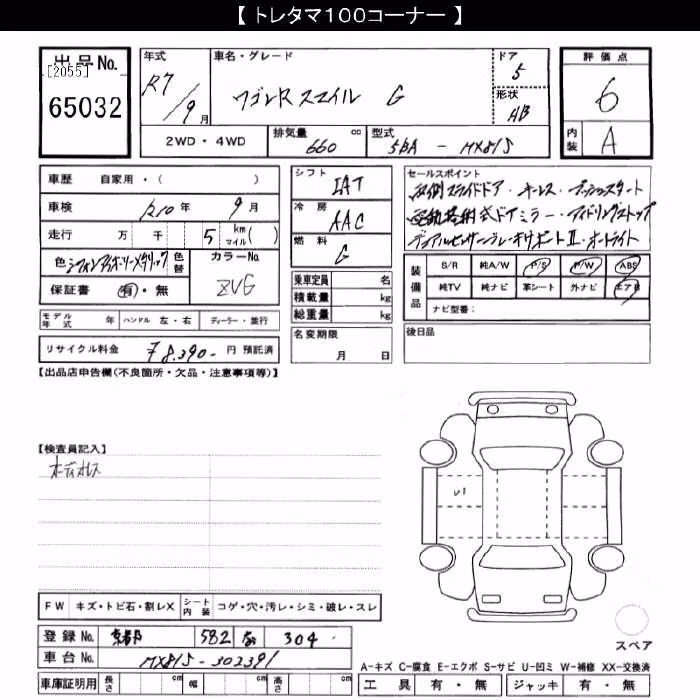 【 トレタマ100コーナー 】
出品No.
[2055]
65032
年式
R7/9月
車名・グレード
ワゴンRスマイル G
ドア
5
形状
AB
評価点
6
内装
A
2WD・4WD
排気量
660 cc
型式
5BA - MX81S
車歴 自家用・( )
車検 R10年 9月
走行 万 千 5 km(マイル)
色 シフォンアイボリーメタリック 色替
カラーNo.
ZVG
保証書 有・無
モデル年式 年 ハンドル 左・右 ディーラー・並行
リサイクル料金 ¥8,390- 円 預託済
シフト
IAT
冷房
AAC
燃料
G
乗車定員 名
積載量 kg
総重量 kg
名変期限
月 日
セールスポイント
両側スライドドア・キーレス・プッシュスタート
電動格納式ドアミラー・アイドリングストップ
デュアルセンサーブレーキサポートⅡ・オートライト
装備品
S/R 純A/W P/S P/W ABS
純TV 純ナビ 革シート 外ナビ エアB
ナビ型番:
後日品
【出品店申告欄(不良箇所・欠品・注意事項等)】
【検査員記入】
ボディオレス
U1
FW キズ・トビ石・割レX シート内装 コゲ・穴・汚レ・シミ・破レ・スレ
登録No. 京都 582 304
車台No. MX81S-302391
車庫証明用 長さ cm 幅 cm 高さ cm
スペア
A-キズ C-腐食 E-エクボ S-サビ U-凹ミ W-補修 XX-交換済
工具 有・無 ジャッキ 有・無